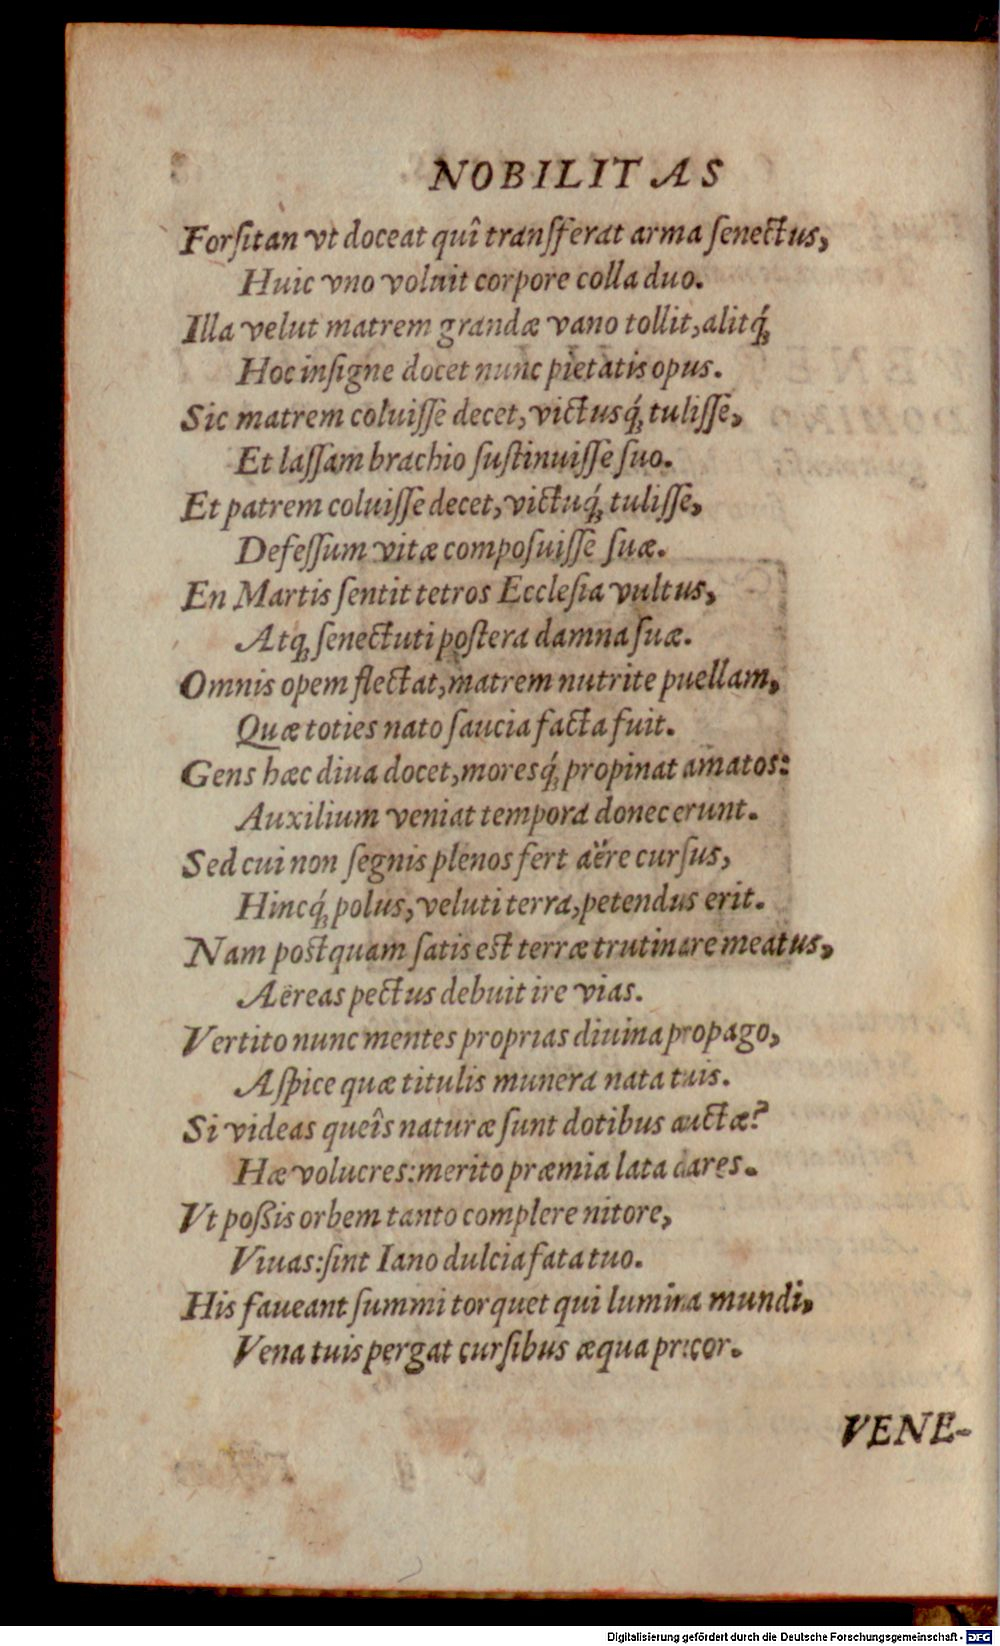 NOBILITAS
Forſitan vt doceat quî tranſferat arma ſenectus,
Huic vno voluit corpore colla duo.
Illa velut matrem grandæ vano tollit, alitq́;
Hoc inſigne docet nunc pietatis opus.
Sic matrem coluiſſe decet, victusq́; tuliſſe,
Et laſſam brachio ſuſtinuiſſe ſuo.
Et patrem coluiſſe decet, victuq́; tuliſſe,
Defeſſum vitæ compoſuiſſe ſuæ.
En Martis ſentit tetros Eccleſia vultus,
Atq; ſenectuti poſtera damna ſuæ.
Omnis opem flectat, matrem nutrite puellam,
Quæ toties nato ſaucia facta fuit.
Gens hæc diua docet, moresq́; propinat amatos:
Auxilium veniat tempora donec erunt.
Sed cui non ſegnis plenos fert aëre curſus,
Hincq́; polus, veluti terra, petendus erit.
Nam poſtquam ſatis eſt terræ trutinare meatus,
Aëreas pectus debuit ire vias.
Vertito nunc mentes proprias diuina propago,
Aſpice quæ titulis munera nata tuis.
Si videas queîs naturæ ſunt dotibus auctæ?
Hæ volucres: merito præmia lata dares.
Vt poßis orbem tanto complere nitore,
Viuas: ſint Iano dulcia fata tuo.
His faueant ſummi torquet qui lumina mundi,
Vena tuis pergat curſibus æqua precor.
VENE-
Digitalisierung gefördert durch die Deutsche Forschungsgemeinschaft - DFG